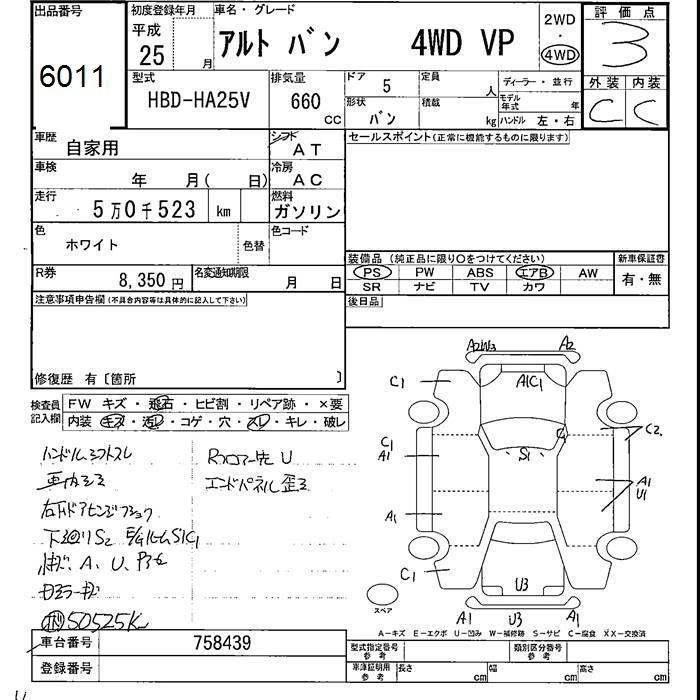 出品番号
6011
初度登録年月
平成
25 月
車名・グレード
アルト バン 4WD VP
2WD
・
4WD
評価点
3
型式
HBD-HA25V
排気量
660
CC
ドア
5
定員
人
ディーラー・並行
形状
バン
積載
kg
モデル年式 年
ハンドル 左・右
外装 内装
C C
車歴
自家用
シフト
AT
セールスポイント(正常に機能するものに限ります)
車検
年 月( 日)
冷房
AC
走行
5万0千523 km
燃料
ガソリン
色
ホワイト
色替
色コード
装備品 (純正品に限り○をつけてください)
新車保証書
PS PW ABS エアB AW
有・無
SR ナビ TV カワ
R券
8,350 円
名変通知期限
月 日
後日品
注意事項申告欄(不具合内容等は具体的に記入して下さい)
修復歴 有〔箇所 〕
検査員記入欄
FW キズ・飛石・ヒビ割・リペア跡・×要
内装 キズ・汚レ・コゲ・穴・スレ・キレ・破レ
ハンドルシフトスレ
車内ヨゴレ
下廻りS2
A、U、
50525K
Rフロアー先U
エンドパネル歪ミ
A2W3 A2
C1 A1C1
C2
C1
A1
S1
A1
U1
A1
C1
U3
A1 U3 A1
スペア
A-キズ E-エクボ U-凹み W-補修跡 S-サビ C-腐食 XX-交換済
車台番号
758439
登録番号
型式指定番号
参考
類別区分番号
参考
車庫証明用
参考
長さ cm
幅 cm
高さ cm